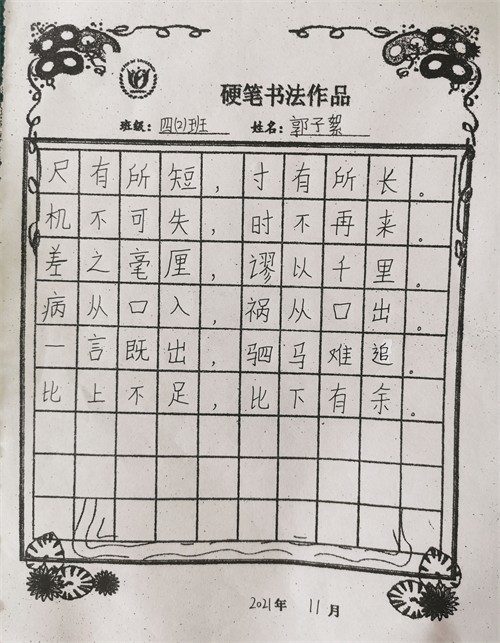 硬笔书法作品
班级：四(2)班 姓名：郭子絮
尺有所短，寸有所长。
机不可失，时不再来。
差之毫厘，谬以千里。
病从口入，祸从口出。
一言既出，驷马难追。
比上不足，比下有余。
2021年 11月